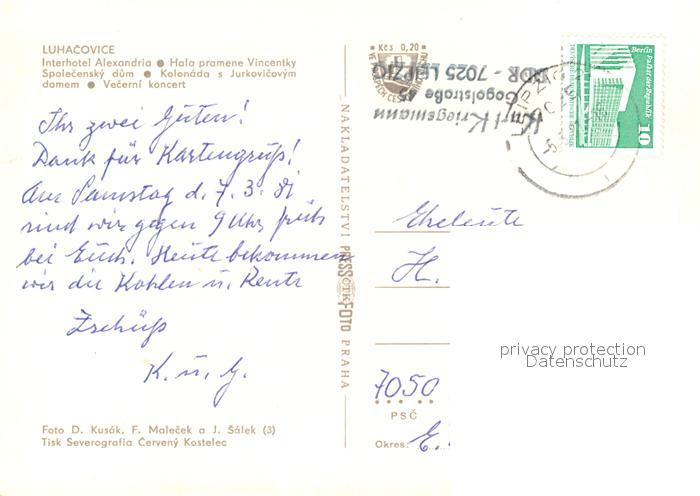 LUHAČOVICE
Interhotel Alexandria ● Hala pramene Vincentky
Společenský dům ● Kolonáda s Jurkovičovým
domem ● Večerní koncert
Ihr zwei Guten!
Dank für Kartengruß!
Am Samstag d. 7. 3. 81
sind wir gegen 9 Uhr früh
bei Euch. Heute bekommen
wir die Kohlen u. Rente
Tschüß
K. u. G.
Foto D. Kusák, F. Maleček a J. Šálek (3)
Tisk Severografia Červený Kostelec
NAKLADATELSTVÍ PRESSFOTO PRAHA
ČTK
Kčs 0,20
Karl Kriegsmann
Gogolstraße 45
DDR - 7025 LEIPZIG
LEIPZIG
Berlin
Palast der Republik
10
Eheleute
H.
7050
PSČ
Okres: E.
privacy protection
Datenschutz